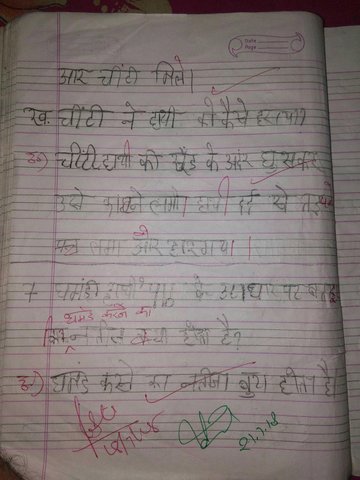 Date
Page
और चींटी मिले।
ख. चींटी ने हाथी को कैसे हराया?
उ०) चींटी हाथी की सूँड के अंदर घुसकर
उसे काटने लगी। हाथी दर्द से
लगा और हार गया।
7 घमंडी हाथी के आधार पर
घमंड करने का
नतीजा कैसा होता है?
उ०) घमंड करने का नतीजा बुरा होता है।
21.7.18